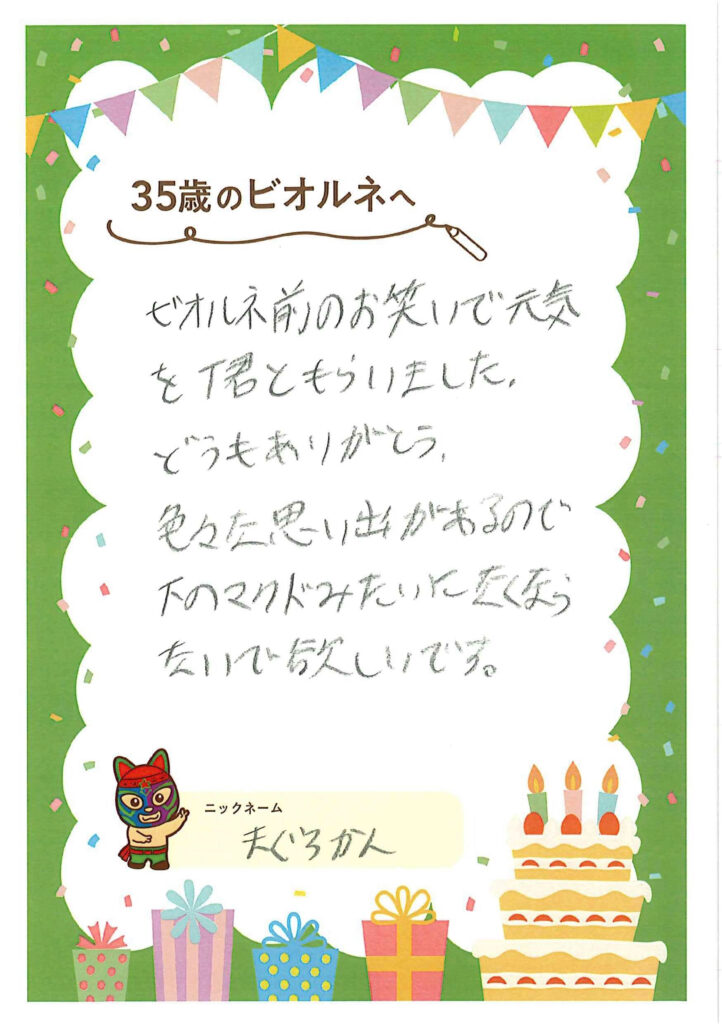 35歳のビオルネへ
ビオルネ前のお笑いで元気
をT君ともらいました。
どうもありがとう。
色々な思い出があるので
下のマクドみたいになくなら
ないで欲しいです。
ニックネーム
まぐろかん